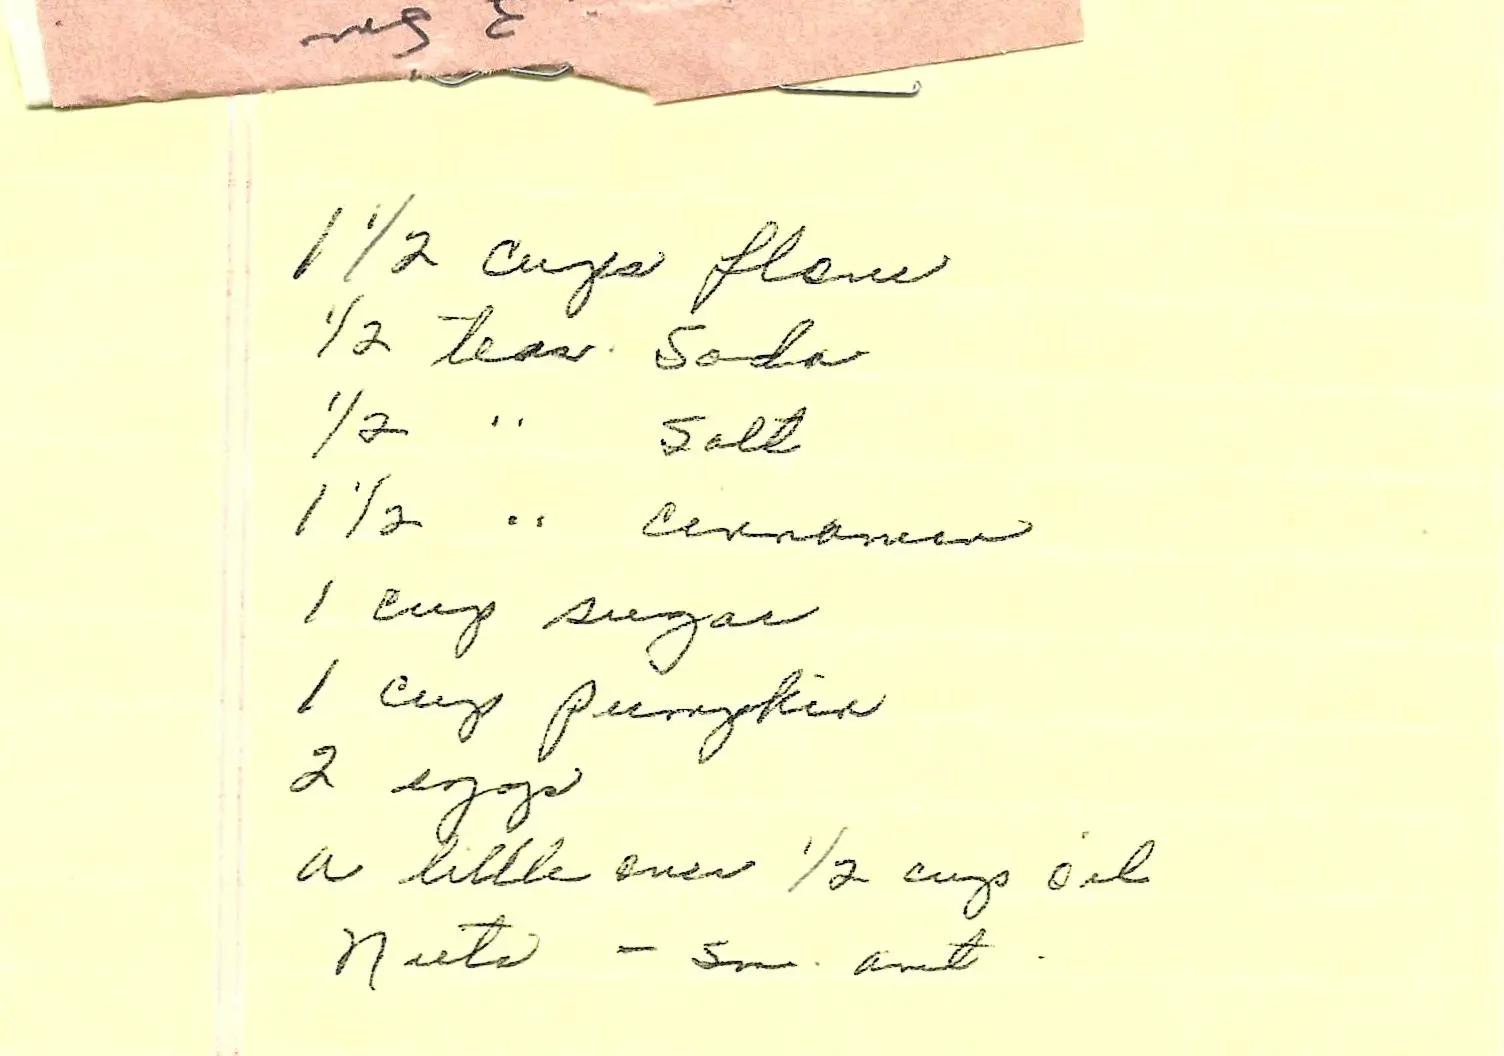 1 1/2 cups flour
1/2 teas. Soda
1/2 " Salt
1 1/2 " Cinnamon
1 cup sugar
1 cup pumpkin
2 eggs
a little over 1/2 cup oil
Nuts - sm. amt.